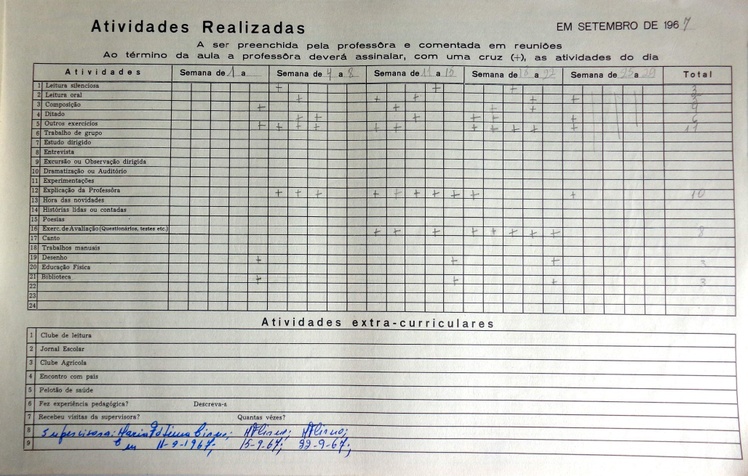 Atividades Realizadas
EM SETEMBRO DE 1967
A ser preenchida pela professôra e comentada em reuniões
Ao término da aula a professôra deverá assinalar, com uma cruz (+), as atividades do dia
Atividades Semana de 1 a Semana de 4 a 8 Semana de 11 a 15 Semana de a 22 Semana de 25 a 29 Total
1 Leitura silenciosa + + + 3
2 Leitura oral + + + + +
3 Composição + + + + 4
4 Ditado + + + + + + 6
5 Outros exercícios + + + + + + + + + + + 11
6 Trabalho de grupo
7 Estudo dirigido
8 Entrevista
9 Excursão ou Observação dirigida
10 Dramatização ou Auditório
11 Experimentações
12 Explicação da Professôra + + + + + + + + + + 10
13 Hora das novidades
14 Histórias lidas ou contadas
15 Poesias
16 Exerc. de Avaliação (Questionários, testes etc.) + + + + + + + + 8
17 Canto
18 Trabalhos manuais
19 Desenho + + + 3
20 Educação Física
21 Biblioteca + + + 3
22
23
24
Atividades extra-curriculares
1 Clube de leitura
2 Jornal Escolar
3 Clube Agrícola
4 Encontro com pais
5 Pelotão de saúde
6 Fez experiência pedagógica? Descreva-a
7 Recebeu visitas da supervisora? Quantas vêzes?
8 Supervisora: Maria
9 Em 11-9-1967; 15-9-67; 22-9-67;